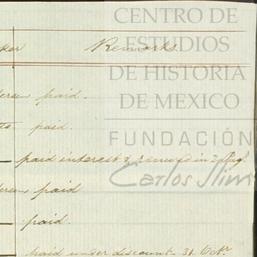 CENTRO DE
ESTUDIOS
DE HISTORIA
DE MEXICO
FUNDACIÓN
Carlos Slim
Remarks
paid.
paid.
paid interest & in
paid
paid.
paid under discount 31 Octr